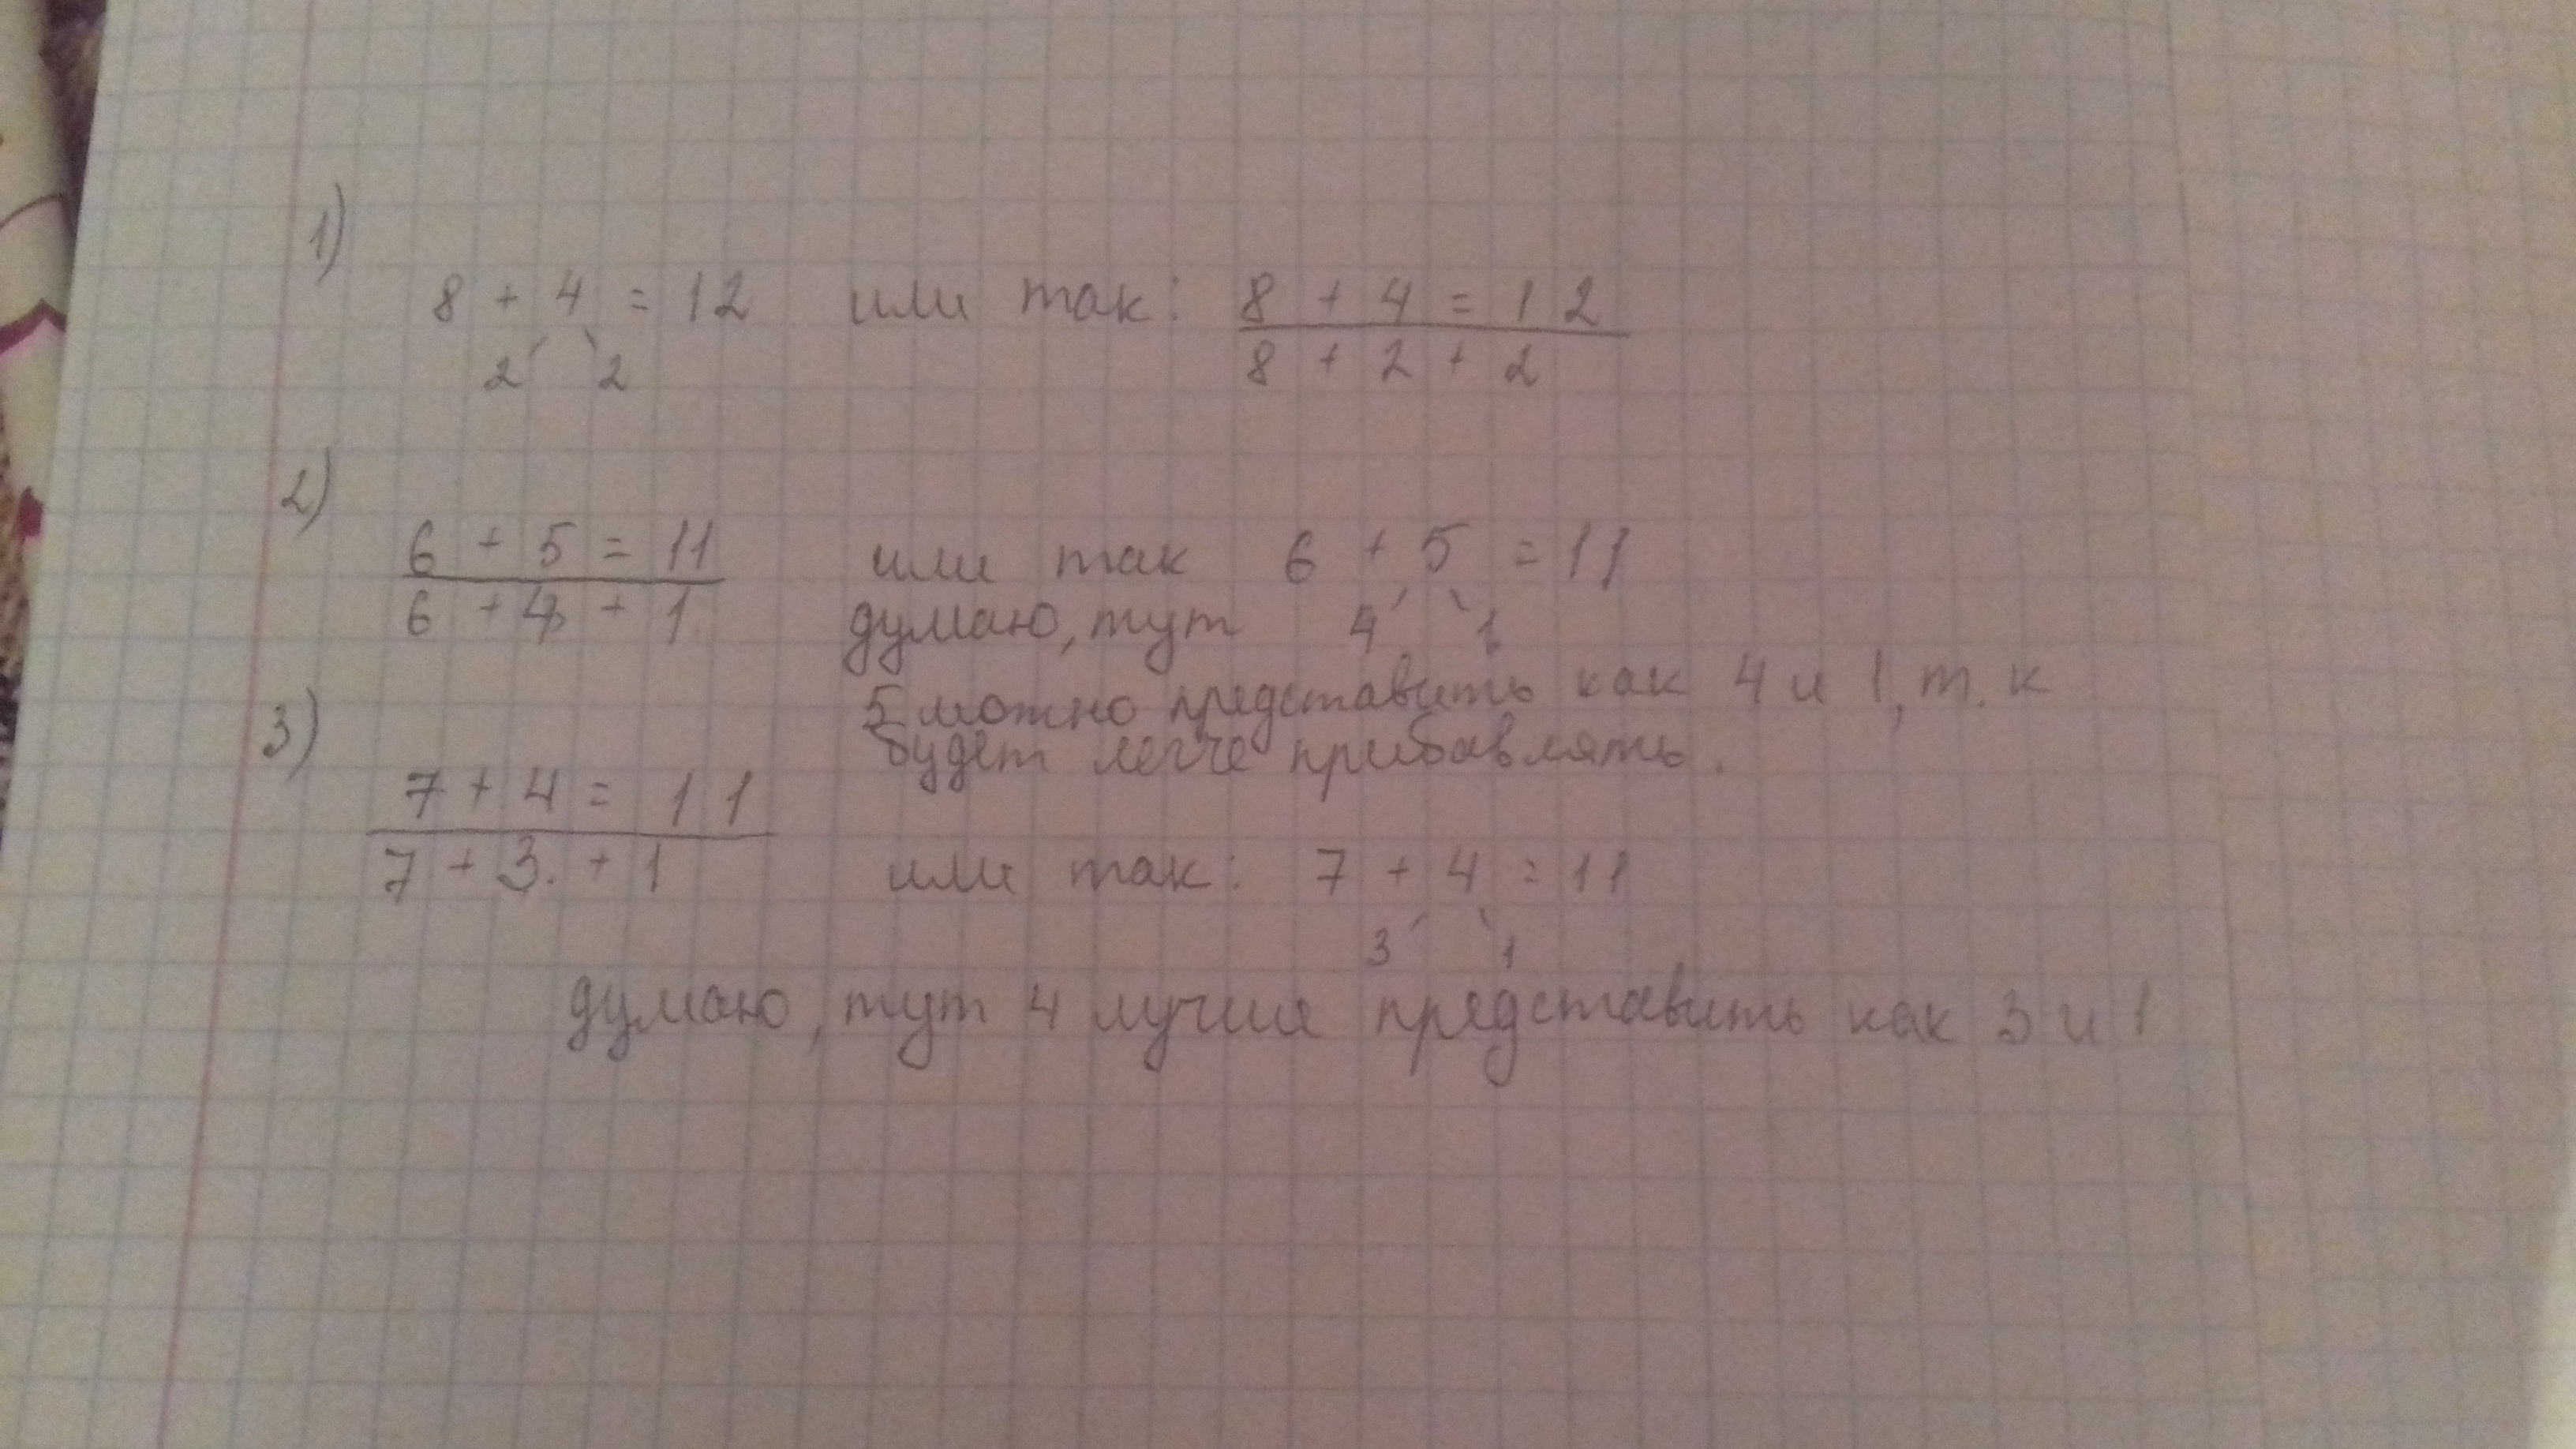 1)
8 + 4 = 12 или так: 8 + 4 = 12
2 2 8 + 2 + 2
2)
6 + 5 = 11 или так 6 + 5 = 11
6 + 4 + 1 думаю, тут 4 1
5 можно представить как 4 и 1, т. к
будет легче прибавлять.
3)
7 + 4 = 11
7 + 3. + 1 или так: 7 + 4 = 11
3 1
думаю, тут 4 лучше представить как 3 и 1